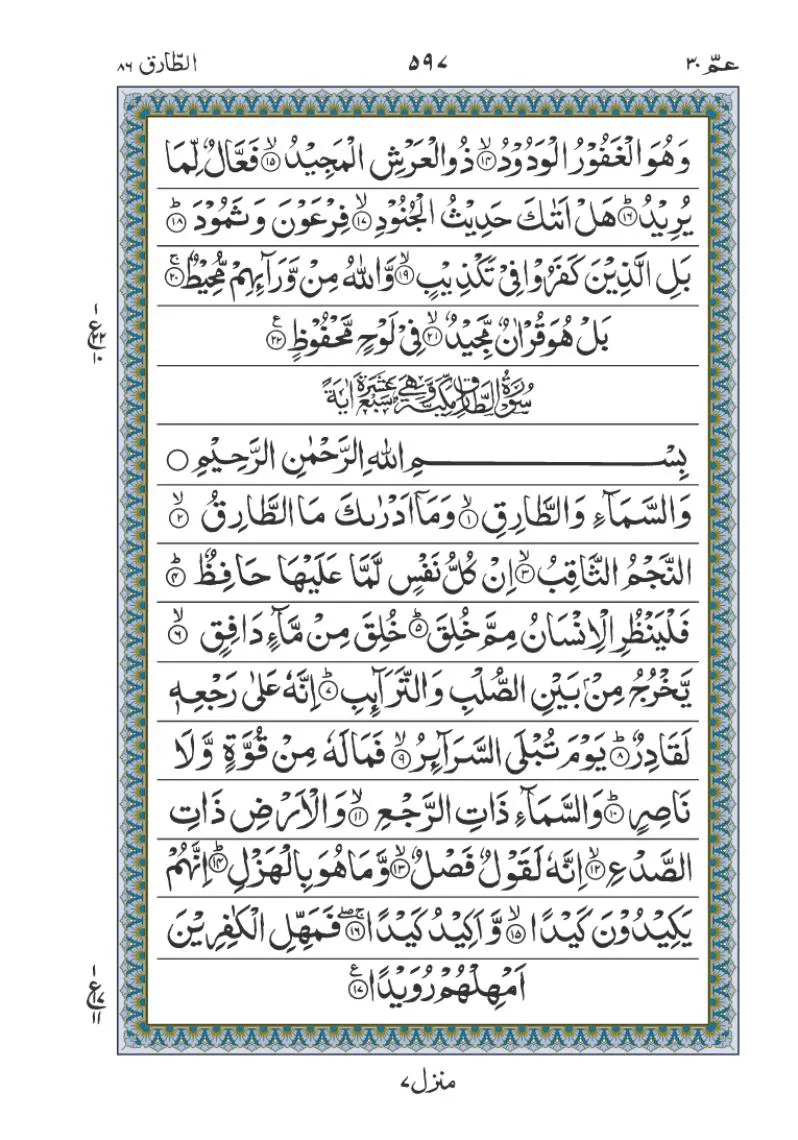 عمّ ۳۰ ۵۹۷ الطّارق ۸۶
وَهُوَ الْغَفُوْرُ الْوَدُوْدُ ۙ﴿۱۴﴾ ذُو الْعَرْشِ الْمَجِيْدُ ۙ﴿۱۵﴾ فَعَّالٌ لِّمَا
يُرِيْدُ ؕ﴿۱۶﴾ هَلْ اَتٰىكَ حَدِيْثُ الْجُنُوْدِ ۙ﴿۱۷﴾ فِرْعَوْنَ وَ ثَمُوْدَ ؕ﴿۱۸﴾
بَلِ الَّذِيْنَ كَفَرُوْا فِيْ تَكْذِيْبٍ ۙ﴿۱۹﴾ وَّ اللّٰهُ مِنْ وَّرَآىِٕهِمْ مُّحِيْطٌ ۚ﴿۲۰﴾
بَلْ هُوَ قُرْاٰنٌ مَّجِيْدٌ ۙ﴿۲۱﴾ فِيْ لَوْحٍ مَّحْفُوْظٍ ﴿۲۲﴾ ع
۱ ع ۲۲ ۱۰
سُوْرَةُ الطَّارِقِ مَكِّيَّةٌ وَّهِيَ سَبْعَ عَشْرَةَ اٰيَةً
بِسْمِ اللّٰهِ الرَّحْمٰنِ الرَّحِيْمِ ○
وَ السَّمَآءِ وَ الطَّارِقِ ۙ﴿۱﴾ وَ مَاۤ اَدْرٰىكَ مَا الطَّارِقُ ۙ﴿۲﴾
النَّجْمُ الثَّاقِبُ ۙ﴿۳﴾ اِنْ كُلُّ نَفْسٍ لَّمَّا عَلَيْهَا حَافِظٌ ؕ﴿۴﴾
فَلْيَنْظُرِ الْاِنْسَانُ مِمَّ خُلِقَ ؕ﴿۵﴾ خُلِقَ مِنْ مَّآءٍ دَافِقٍ ۙ﴿۶﴾
يَّخْرُجُ مِنْۢ بَيْنِ الصُّلْبِ وَ التَّرَآىِٕبِ ؕ﴿۷﴾ اِنَّهٗ عَلٰى رَجْعِهٖ
لَقَادِرٌ ؕ﴿۸﴾ يَوْمَ تُبْلَى السَّرَآىِٕرُ ۙ﴿۹﴾ فَمَا لَهٗ مِنْ قُوَّةٍ وَّ لَا
نَاصِرٍ ؕ﴿۱۰﴾ وَ السَّمَآءِ ذَاتِ الرَّجْعِ ۙ﴿۱۱﴾ وَ الْاَرْضِ ذَاتِ
الصَّدْعِ ۙ﴿۱۲﴾ اِنَّهٗ لَقَوْلٌ فَصْلٌ ۙ﴿۱۳﴾ وَّ مَا هُوَ بِالْهَزْلِ ؕ﴿۱۴﴾ اِنَّهُمْ
يَكِيْدُوْنَ كَيْدًا ۙ﴿۱۵﴾ وَّ اَكِيْدُ كَيْدًا ۚۖ﴿۱۶﴾ فَمَهِّلِ الْكٰفِرِيْنَ
اَمْهِلْهُمْ رُوَيْدًا ﴿۱۷﴾ ع
۱ ع ۱۷ ۱۱
منزل ۷